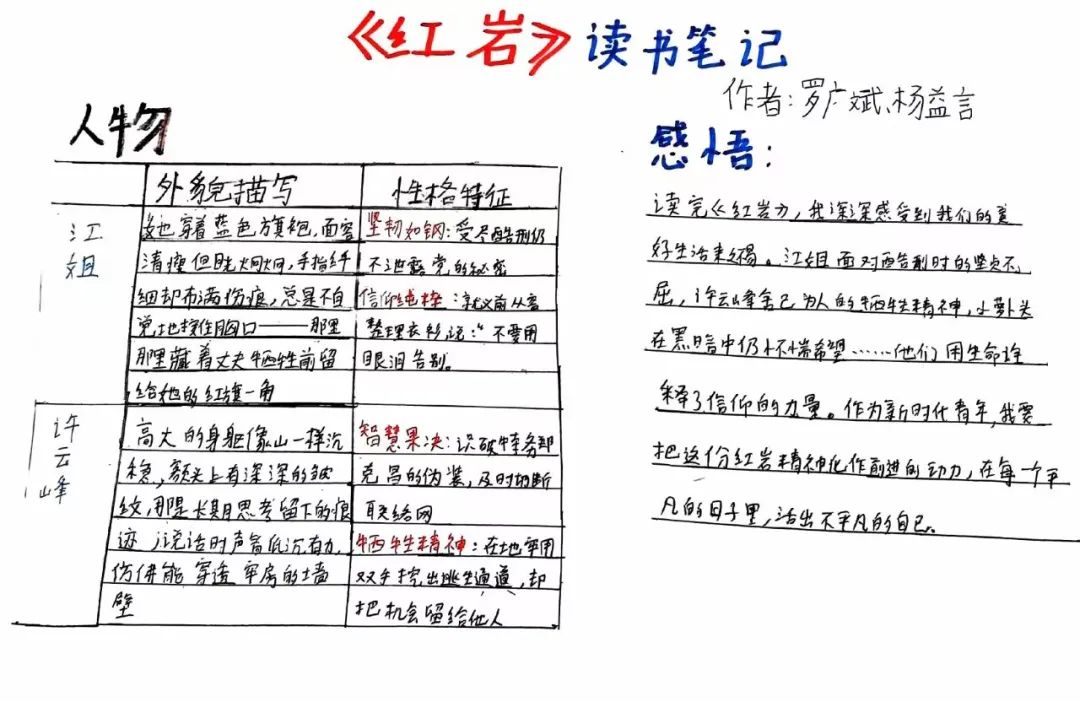 《红岩》读书笔记
作者:罗广斌、杨益言
人物
外貌描写 性格特征
江姐
她穿着蓝色旗袍,面容
清瘦但目光炯炯,手指纤
细却布满伤痕,总是不自
觉地按住胸口——那里
那里藏着丈夫牺牲前留
给她的红旗一角
坚韧如钢:受尽酷刑仍
不泄露党的秘密
信仰纯粹:就义前从容
整理衣衫说:“不要用
眼泪告别。
许云峰
高大的身躯像山一样沉
稳,额头上有深深的皱
纹,那是长期思考留下的痕
迹,说话时声音低沉有力,
仿佛能穿透牢房的墙
壁
智慧果决:识破特务郑
克昌的伪装,及时切断
联络网
牺牲精神:在地牢用
双手挖出逃生通道,却
把机会留给他人
感悟:
读完《红岩》,我深深感受到我们的美
好生活来之不易。江姐面对酷刑时的坚贞不
屈,许云峰舍己为人的牺牲精神,小萝卜头
在黑暗中仍怀揣希望……他们用生命诠
释了信仰的力量。作为新时代青年,我要
把这份红岩精神化作前进的动力,在每一个平
凡的日子里,活出不平凡的自己。